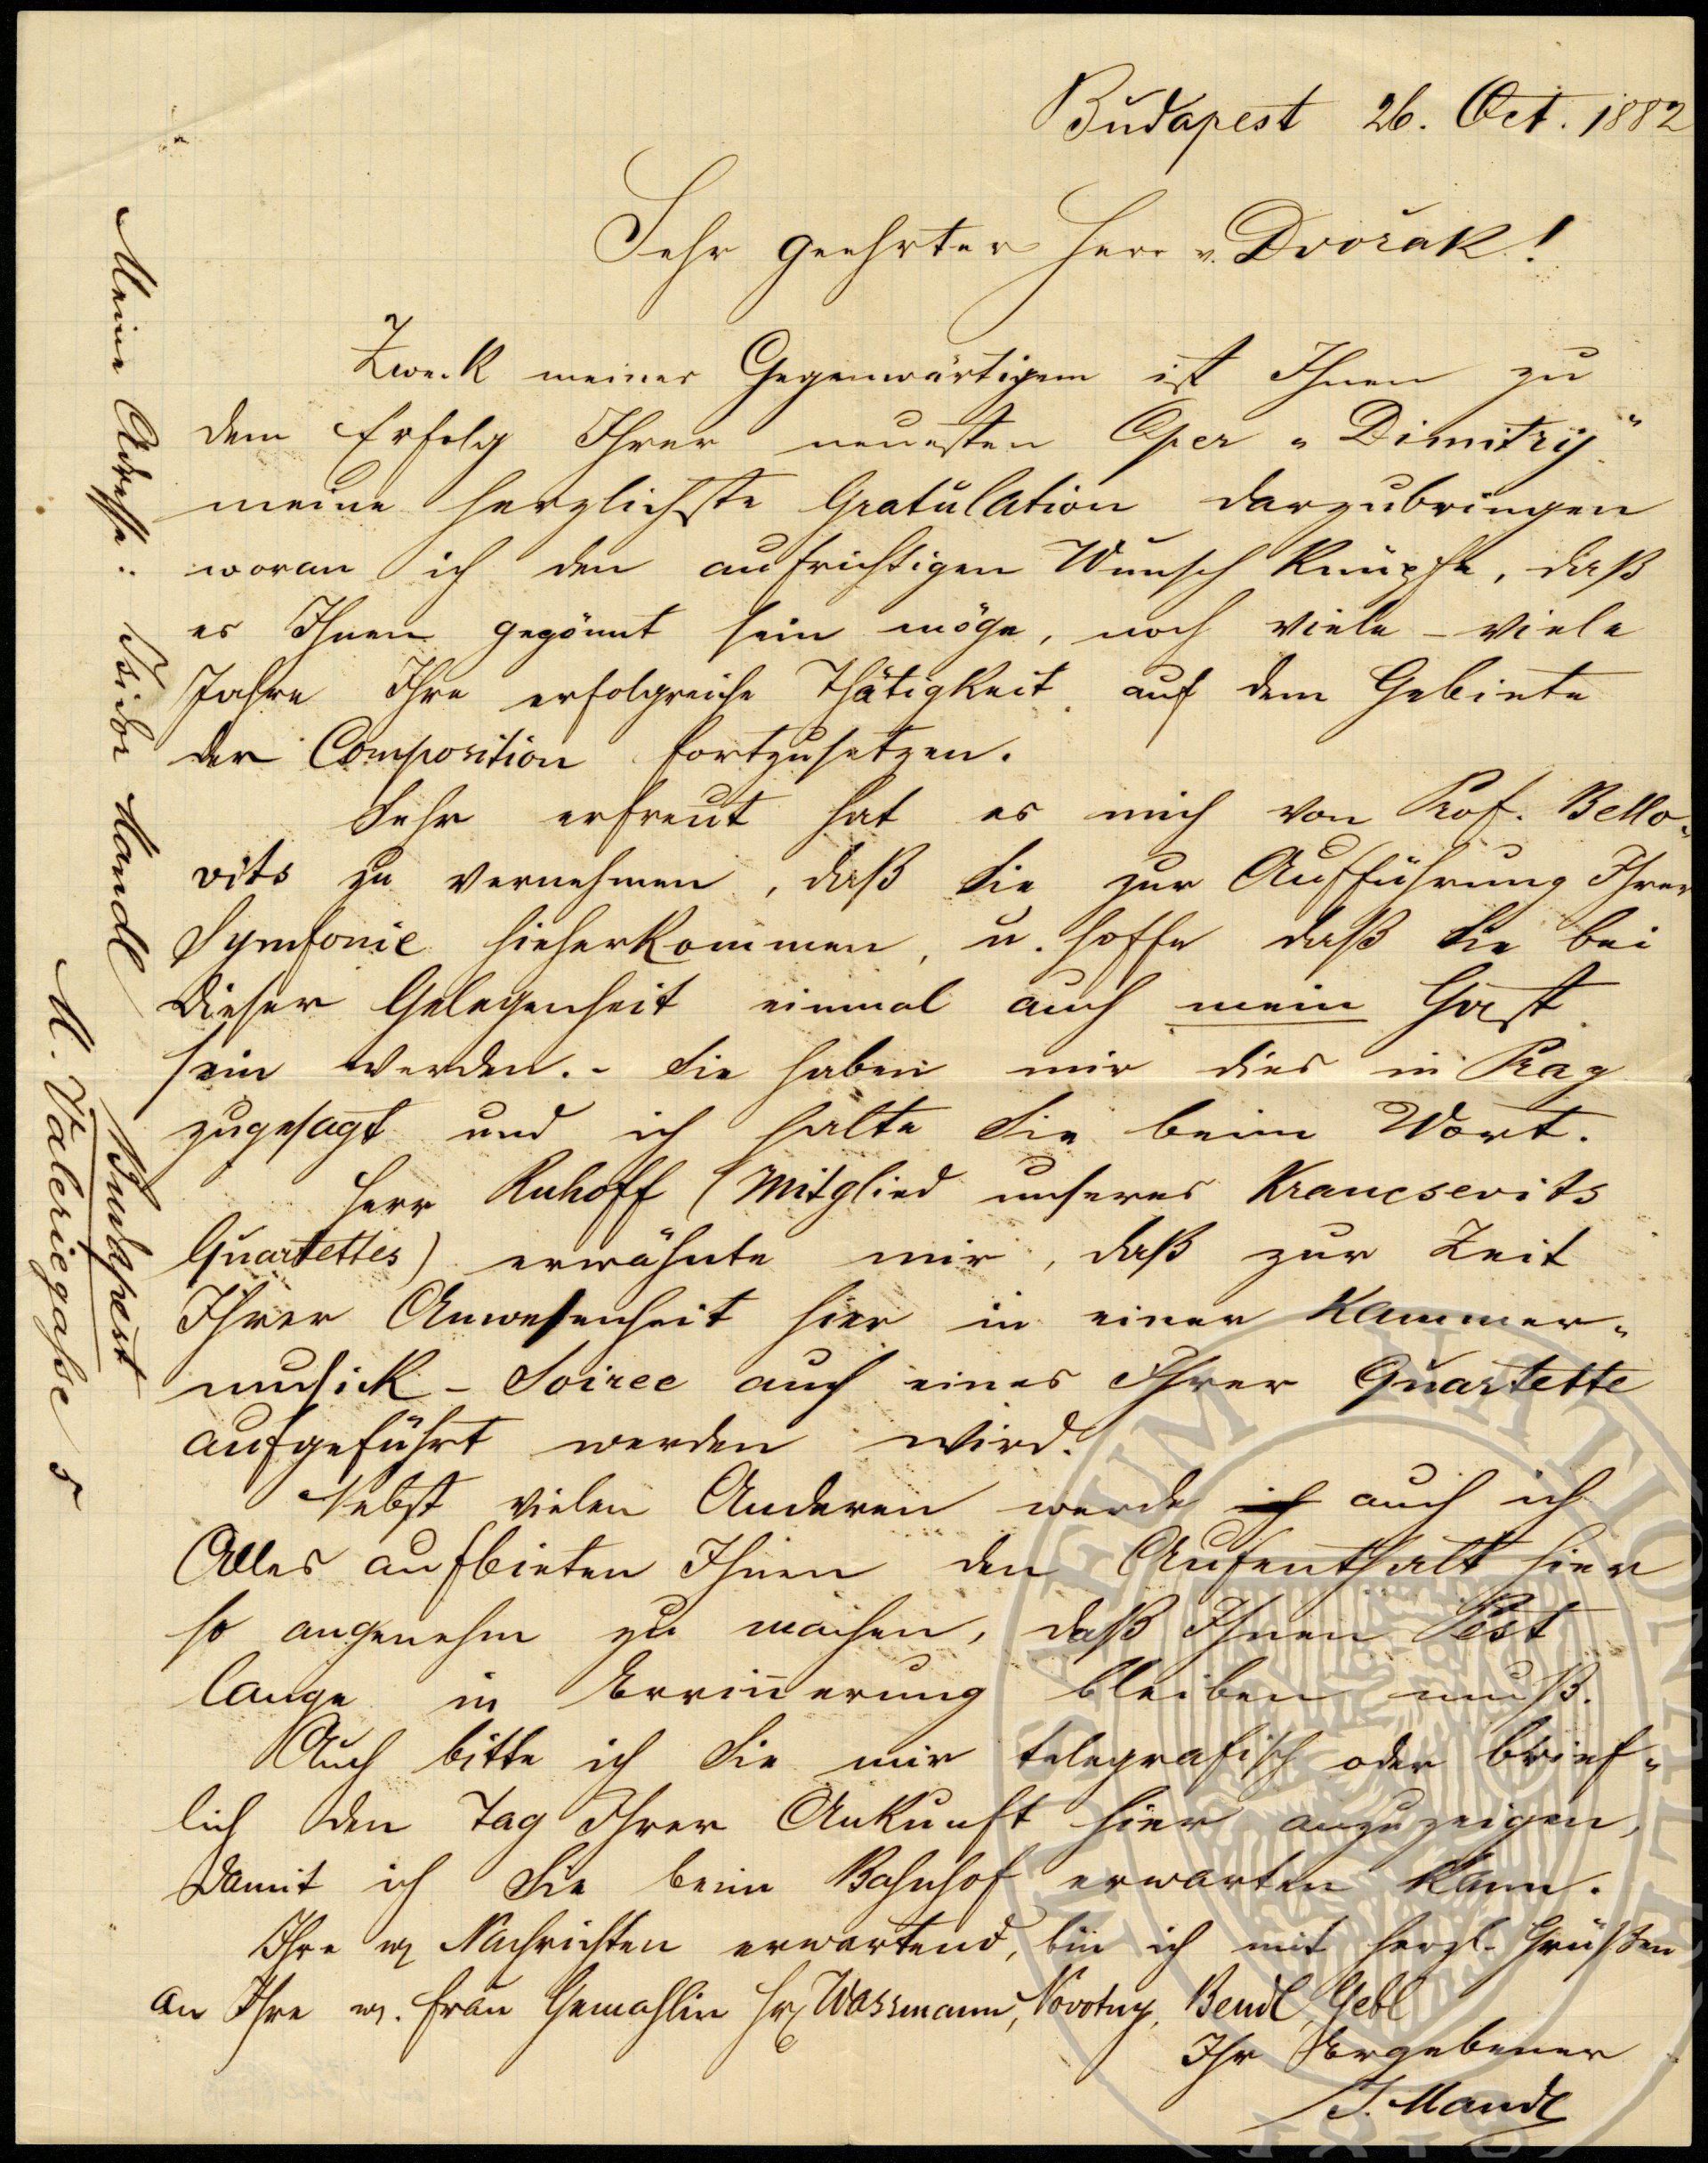 Budapest 26. Oct. 1882
Sehr geehrter Herr v. Dvořak!
Zweck meines Gegenwärtigem ist Ihnen zu
dem Erfolg Ihrer neuesten Oper „Dimitrij"
meine herzlichste Gratulation darzubringen
woran ich den aufrichtigen Wunsch knüpfe, daß
es Ihnen gegönnt sein möge, noch viele – viele
Jahre Ihre erfolgreiche Thätigkeit auf dem Gebiete
der Composition fortzusetzen.
Sehr erfreut hat es mich von Prof. Bello-
vits zu vernehmen, daß Sie zur Aufführung Ihrer
Symfonie hieherkommen, u. hoffe daß Sie bei
dieser Gelegenheit einmal auch mein Gast
sein werden. – Sie haben mir dies in Prag
zugesagt und ich halte Sie beim Wort.
Herr Ruhoff (Mitglied unseres Krancsevits
Quartettes) erwähnte mir, daß zur Zeit
Ihrer Anwesenheit hier in einer Kammer-
musick – Soiree auch eines Ihrer Quartette
aufgeführt werden wird.
Nebst vielen Anderen werde ich auch ich
Alles aufbieten Ihnen den Aufenthalt hier
so angenehm zu machen, daß Ihnen Pest
lange in Errinerung bleiben muß.
Auch bitte ich Sie mir telegrafisch oder brief-
lich den Tag Ihrer Ankunft hier anzuzeigen,
damit ich Sie beim Bahnhof erwarten kann.
Ihre w. Nachrichten erwartend, bin ich mit herzl. Grüßen
an Ihre w. Frau Gemahlin Hr. Wassmann, Novotny, Bendl, Gebl
Ihr Ergebener
I. Mandl
Meine Adresse: Isidor Mandl
Budapest
M. Valeriegasse 5
MUSAEUM NATIONALE
1818